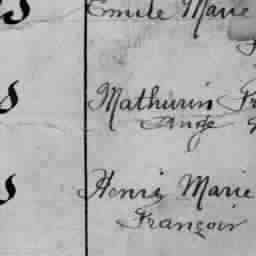 s Emile Marie
s Mathurin Fr
Ange
s Henri Marie
François